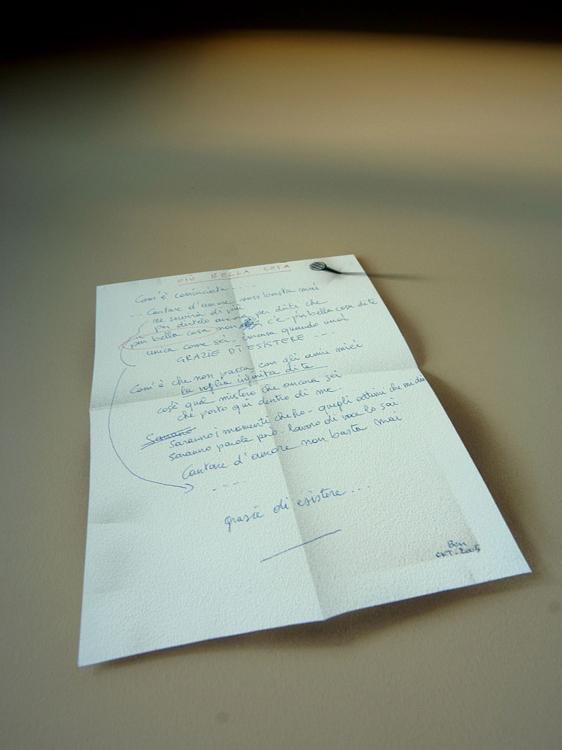 PIÙ BELLA COSA
Com'è cominciata ....
.. Cantare d'amore non basta mai
ne servirà di più
Per dirtelo ancora per dirti che
più bella cosa non c'è più bella cosa di te
unica come sei immensa quando vuoi
GRAZIE DI ESISTERE ....
Com'è che non passa con gli anni miei
la voglia infinita di te
cos'è quel mistero che ancora sei
che porto qui dentro di me
Saranno
Saranno i momenti che ho - quegli attimi che mi dai
saranno parole però lavoro di voce lo sai
Cantare d'amore non basta mai
....
grazie di esistere ...
Ben
OKT-2005